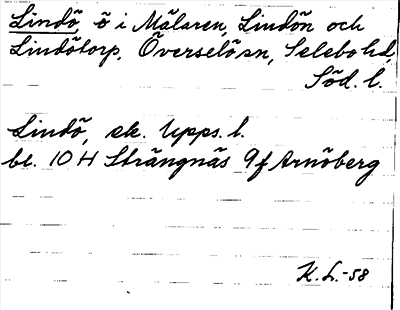 Lindö, ö i Mälaren, Lindön och
Lindötorp, Överselö sn, Selebo hd,
Söd. l.
Lindö, ek. Upps. l.
bl. 10 H Strängnäs 9f Arnöberg
K. L. -58